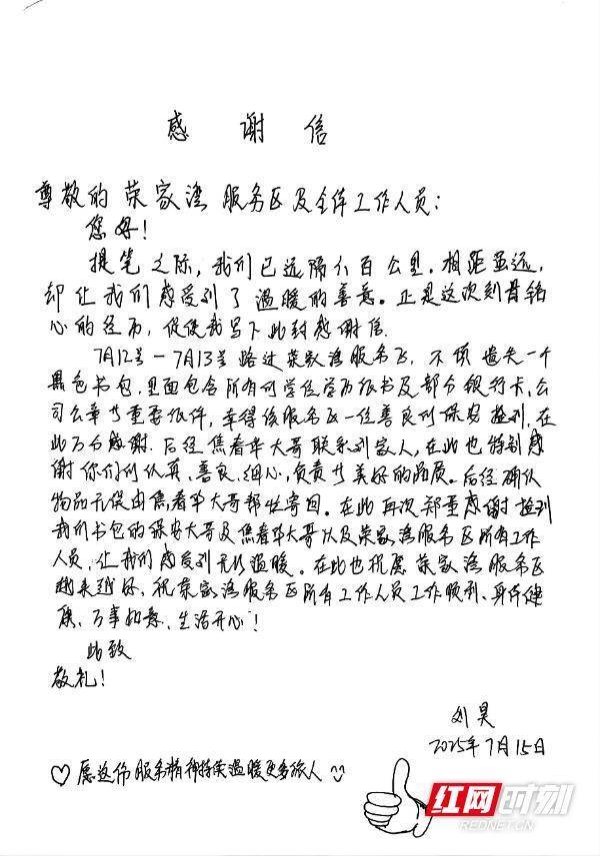 感谢信
尊敬的荣家湾服务区及全体工作人员：
您好！
提笔之际，我们已远隔六百公里。相距虽远，
却让我们感受到了温暖的善意。正是这次刻骨铭
心的经历，促使我写下此封感谢信.
7月12号-7月13号路过荣家湾服务区，不慎遗失一个
黑色书包，里面包含所有的学位学历证书及部分银行卡、公
司公章等重要证件，幸得该服务区一位善良的保安捡到，在
此万分感谢.后经焦春华大哥联系到家人，在此也特别感
谢你们的认真、善良、细心、负责等美好的品质。后经确认
物品无误由焦春华大哥帮忙寄回。在此再次郑重感谢捡到
我们书包的保安大哥及焦春华大哥以及荣家湾服务区所有工作
人员，让我们感受到无比温暖。在此也祝愿荣家湾服务区
越来越好，祝荣家湾服务区所有工作人员工作顺利、身体健
康、万事如意、生活开心！
此致
敬礼！
刘昊
2025年7月15日
♡愿这份服务精神持续温暖更多旅人
红网时刻
REDNET.CN